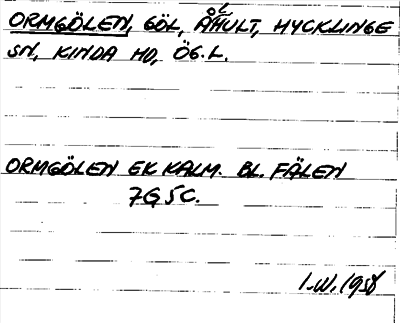 ORMGÖLEN, GÖL, ÅHULT, HYCKLINGE
SN, KINDA HD, ÖG.L.
ORMGÖLEN EK KALM. BL. FÄLEN
7G 5C.
I.W. 1958